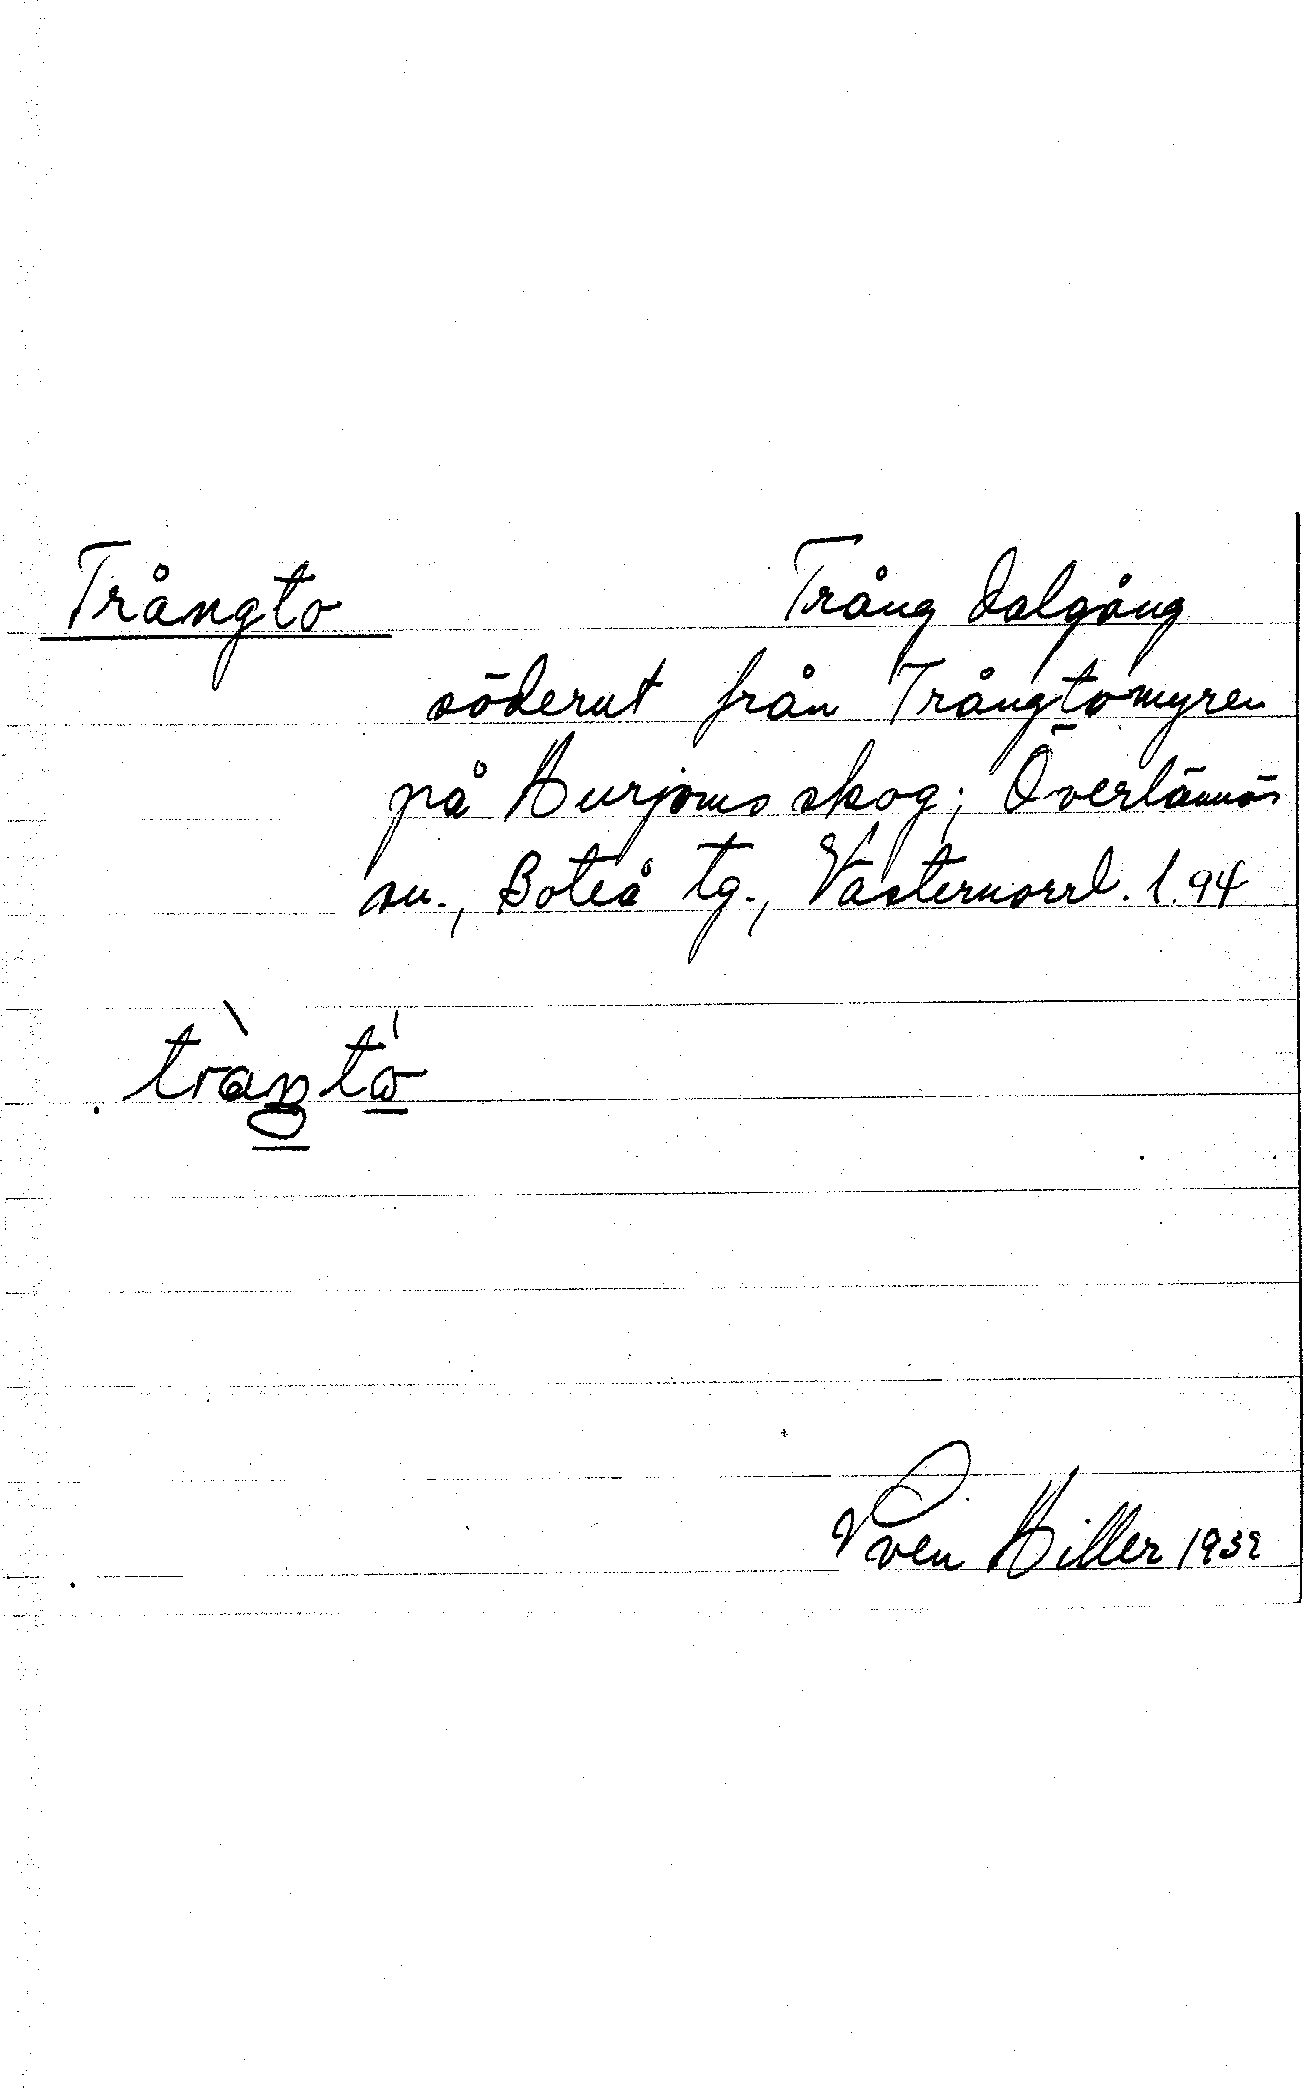 Trångto Trång dalgång
söderut från Trångtomyren
på Hurjoms skog; Överlännäs
sn., Boteå tg., Västernorrl. l. 94
Sven Hiller 1932